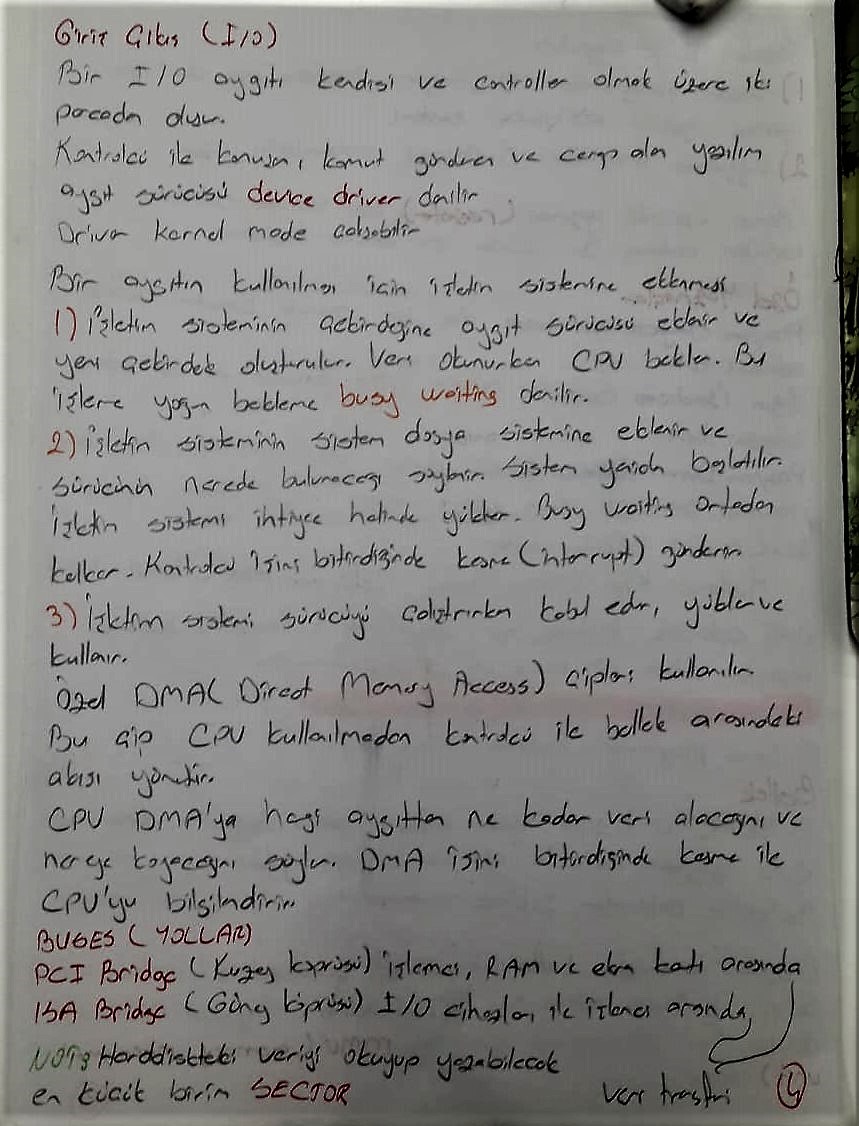 Giriş Çıkış (I/O)
Bir I/O aygıtı kendisi ve controller olmak üzere iki
parçadan oluşur.
Kontrolcü ile konuşan, komut gönderen ve cevap alan yazılım
aygıt sürücüsü device driver denilir
Driver kernel mode çalışabilir
Bir aygıtın kullanılması için işletim sistemine eklenmesi
1) İşletim sisteminin çekirdeğine aygıt sürücüsü eklenir ve
yeni çekirdek oluşturulur. Veri okunurken CPU bekler. Bu
işleme yoğun bekleme busy waiting denilir.
2) İşletim sisteminin sistem dosya sistemine eklenir ve
sürücünün nerede bulunacağı söylenir. Sistem yeniden başlatılır.
İşletim sistemi ihtiyaç halinde yükler. Busy waiting ortadan
kalkar. Kontrolcü işini bitirdiğinde kesme (interrupt) gönderir.
3) İşletim sistemi sürücüyü çalıştırırken kabul eder, yükler ve
kullanır.
Özel DMA( Direct Memory Access) çipleri kullanılır.
Bu çip CPU kullanılmadan kontrolcü ile bellek arasındaki
akışı yönetir.
CPU DMA'ya hangi aygıttan ne kadar veri alacağını ve
nereye koyacağını söyler. DMA işini bitirdiğinde kesme ile
CPU'yu bilgilendirir.
BUSES ( YOLLAR)
PCI Bridge (Kuzey köprüsü) işlemci, RAM ve ekran kartı arasında
ISA Bridge (Güney köprüsü) I/O cihazları ile işlemci arasında
NOT: Harddiskteki veriyi okuyup yazabilecek
en küçük birim SECTOR
veri trasferi
4